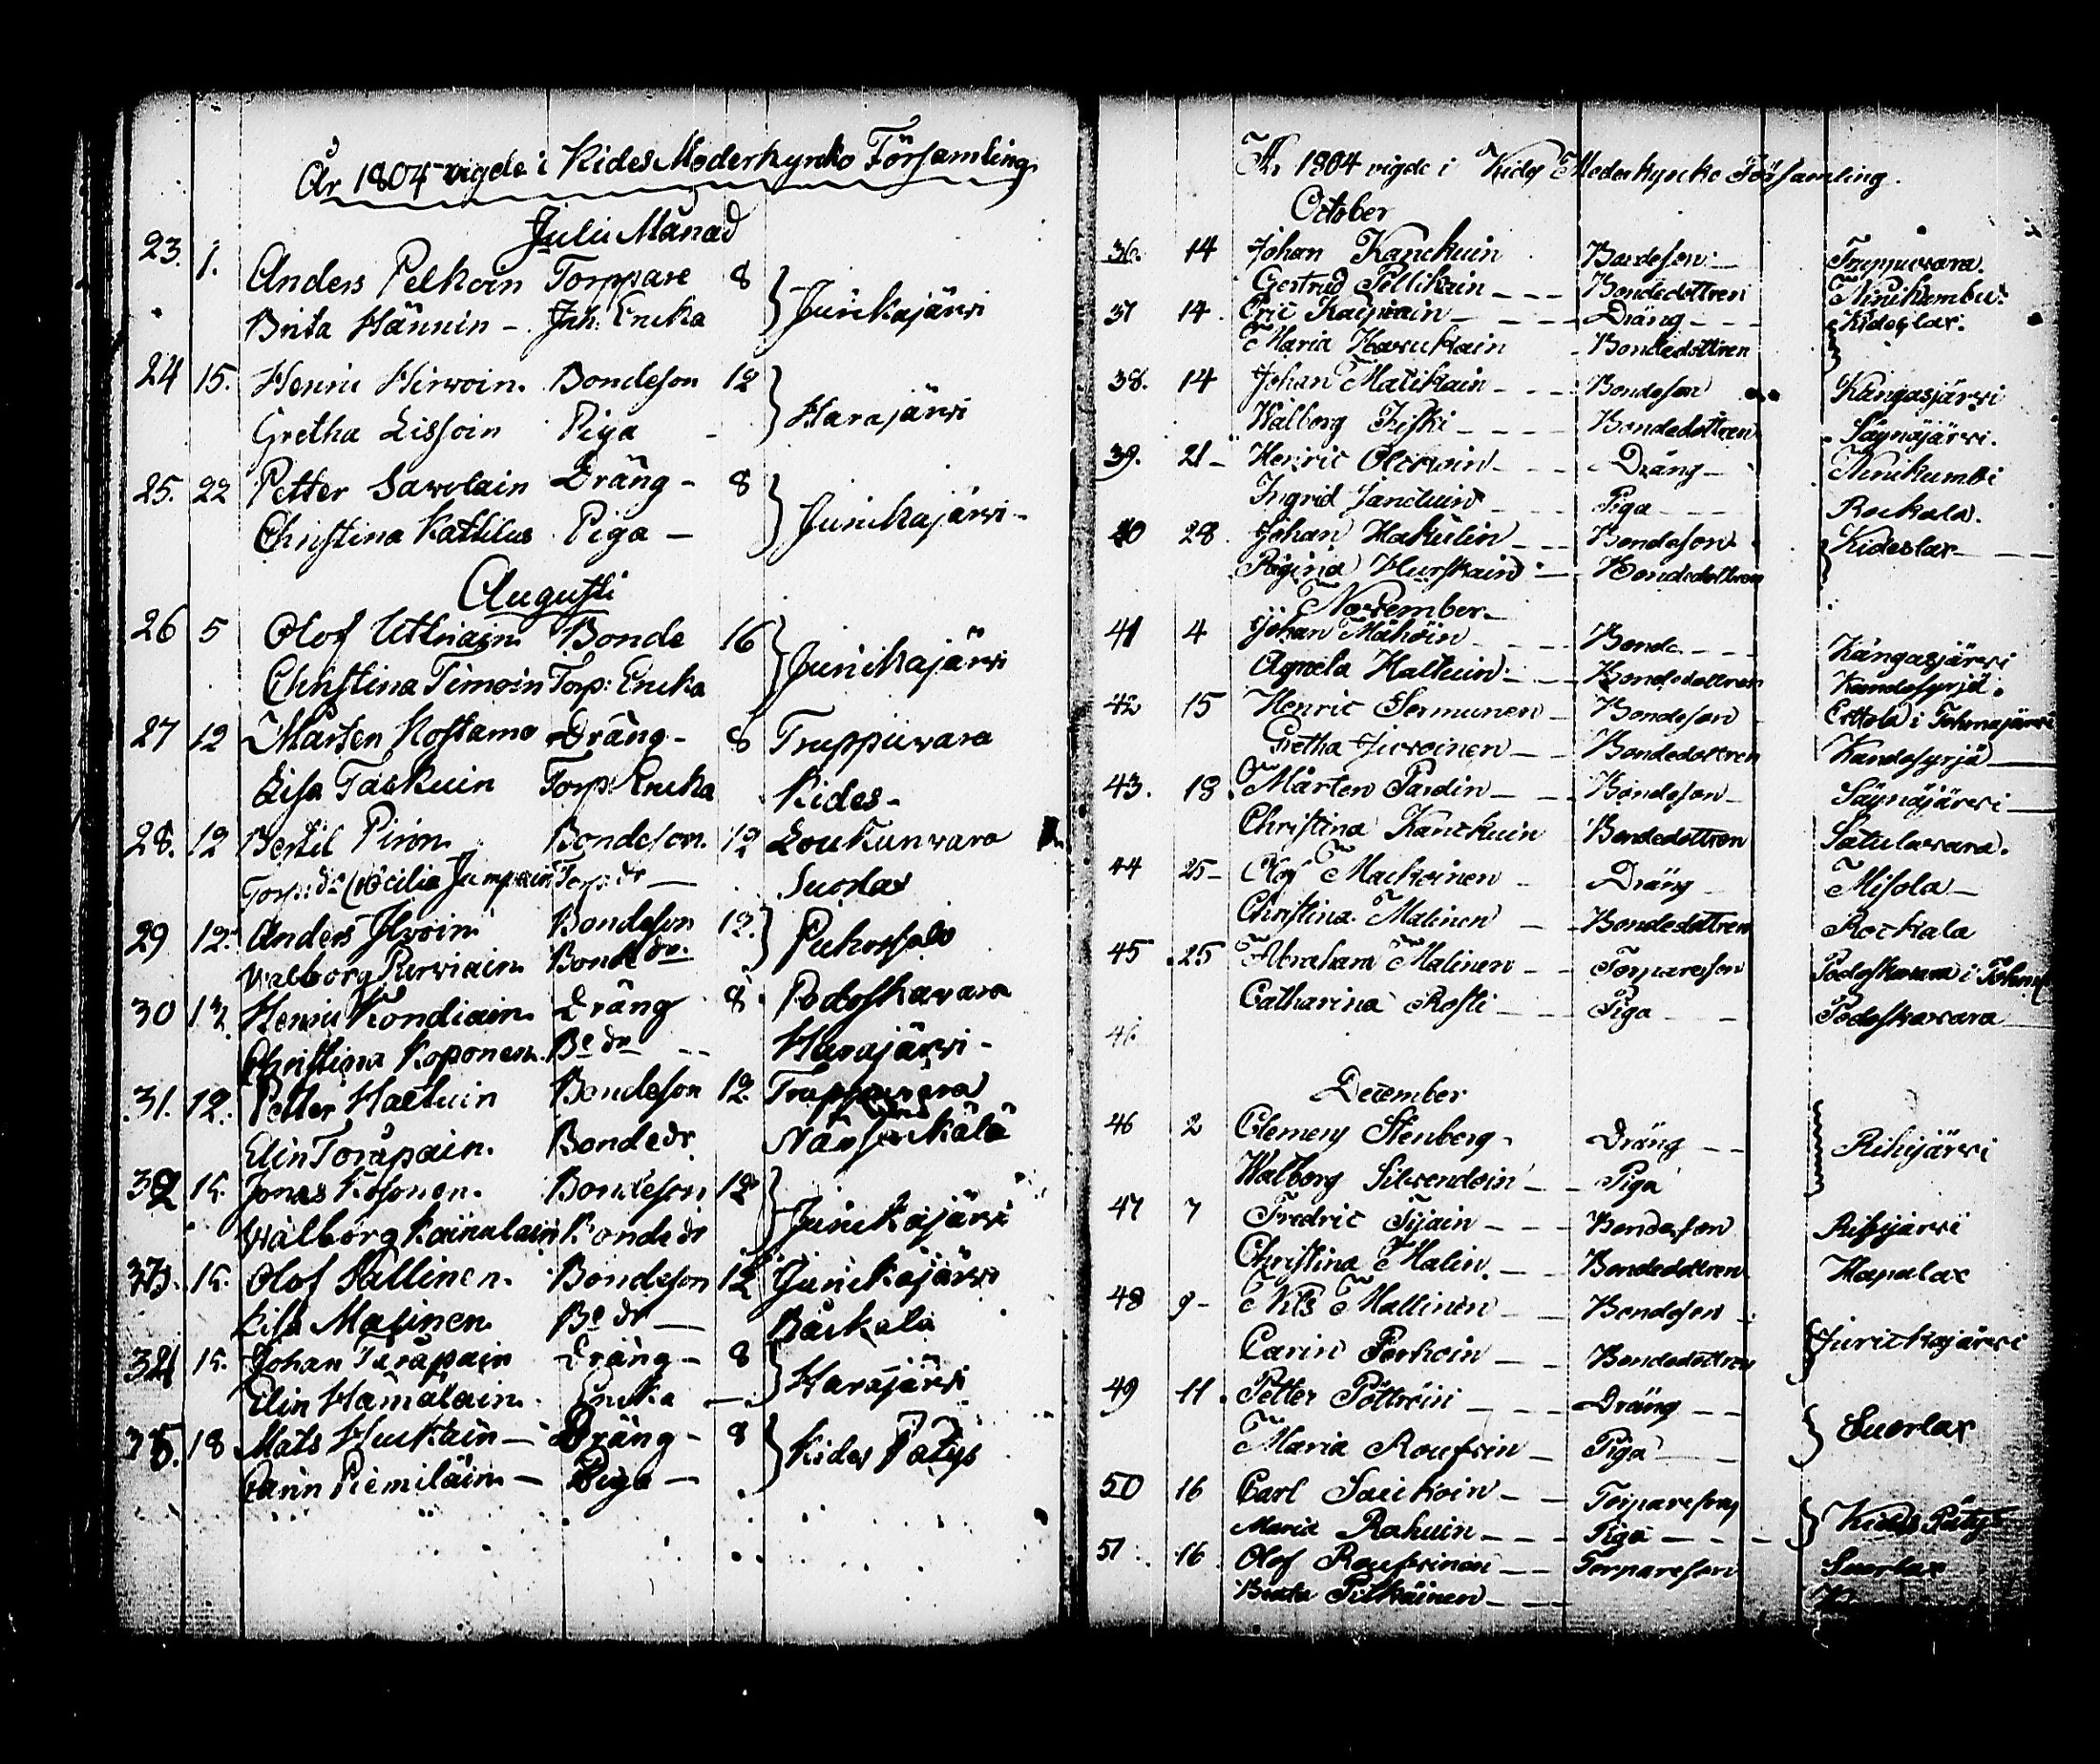 År 1804 vigde i Kides Moderkyrko Församling
Julii Månad
23. 1. Anders Pelkoin Torppare 8
Brita Hännin - Inh: Encka } Juurikajärvi
24 15. Henric Hirvoin. Bondeson 12
Gretha Lissoin Piga - } Harajärvi
25. 22 Petter Savolain Dräng - 8
Christina Kattilus Piga - } Juurikajärvi -
Augusti
26 5 Olof Uthriain Bonde 16
Christina Timoin Torp: Encka } Juurikajärvi
27 12 Mårten Kostamo Dräng - 8 Truppuvara
Lisa Taskuin Torp: Encka Kides -
28. 12 Bertil Piron Bondeson. 12 Loukunvara
Torp: dr Cecilia Jumpain Torp: dr — Suorlax
29 12. Anders Ilvoin Bondeson 12.
Walborg Purviain Bonde dr. } Puhossalo
30 12 Henric Kondiain. Dräng 8. Podoskavara
Christina Koponen. Be dr - - Harajärvi -
31. 12. Petter Haltuin Bondeson 12. Truppuvara
Elin Toråpain. Bonde dr
32 15. Jonas Kosonen. Bondeson 12
Walborg Kainalain Bonde dr } Juurikajärvi
33. 15. Olof Sallinen. Bondeson 12 Juurikajärvi
Lisa Malinen Be dr — Råckala
34 15. Johan Toråpain Dräng - 8
Elin Hämäläin. Encka — } Harajärvi
35. 18 Mats Huckain — Dräng - 8
Carin Piemiläin — Piga — } Kides Potys
År 1804 vigde i Kides Moderkyrko Församling.
October
36. 14 Johan Kanckuin Bondeson — Truppuvara.
Gertrud Pellikain - - - Bondedottren Ninikumbu.
37 14. Eric Karvain - - - Dräng - - - Kideslax.
Maria Havukain - Bondedottren
38. 14 Johan Matikain - - - Bondeson Kangasjärvi
Walborg Fiski - - - - Bondedottren Säynäjärvi.
39. 21 - Henric Olckoin - - - Dräng - Ninikumbi
Ingrid Janckuin - Piga - - - Rockala.
40 28. Johan Hakulin - - - Bondeson Kideslax - -
Regina Hurskain - - Bondedottren
November -
41 4 Johan Mähöin - - - - Bonde - - - Kangasjärvi
Agneta Haltuin - - - Bondedottren Kandosyrjä.
42 15 Henric Sormunen - Bondeson Ettola i Tohmajärvi
Gretha Juvoinen - - Bondedottren Kandosyrjä —
43. 18. Mårten Pardin - - - Bondeson - Säynäjärvi —
Christina Kanckuin Bondedottren Satulavara.
44 25 - Olof Mackoinen - Dräng - Misola -
Christina Malinen - Bondedottren Rockala
45 25 Abraham Malinen - - Torpareson Podoskavara i Tohm
Catharina Rosti - - - Piga - - - Podoskavara
46.
December
46 2 Clemens Stenberg - Dräng - - Rihijärvi
Walborg Silvendoin - - Piga
47 7 Fredric Tijain - - - Bondeson Rihijärvi
Christina Malin - - Bondedottren Hapalax
48 9 - Nils Mallinen - - - Bondeson -
Carin Parhoin - - - Bondedottren } Jurickajärvi
49 11. Petter Pöllöin - - - Dräng - -
Maria Roufvin - Piga - - } Suorlax
50 16 Carl Saickoin - - - Torpareson
Maria Rahuin - - - Piga - - - - } Kides Potys
51. 16. Olof Roufvinen - - Torpareson Suorlax
Beata Pilkäinen - - -